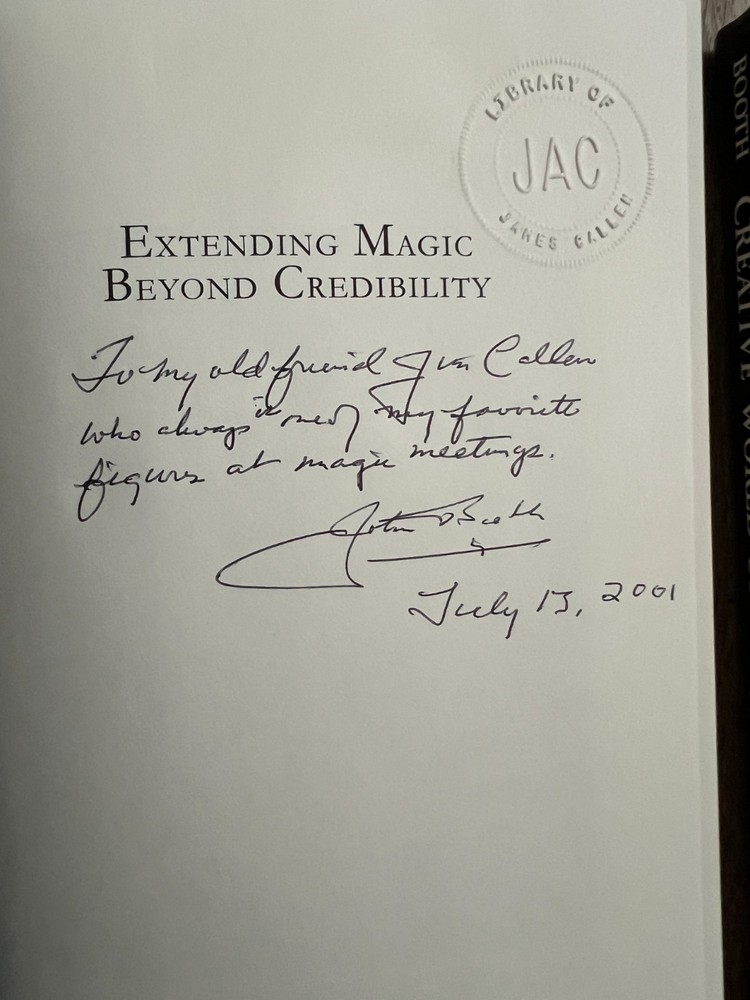 LIBRARY OF
JAC
JAMES CALLEN
EXTENDING MAGIC
BEYOND CREDIBILITY
To my old friend Jim Callen
who always is one of my favorite
figures at magic meetings.
John Booth
July 13, 2001
BOOTH CREATIVE